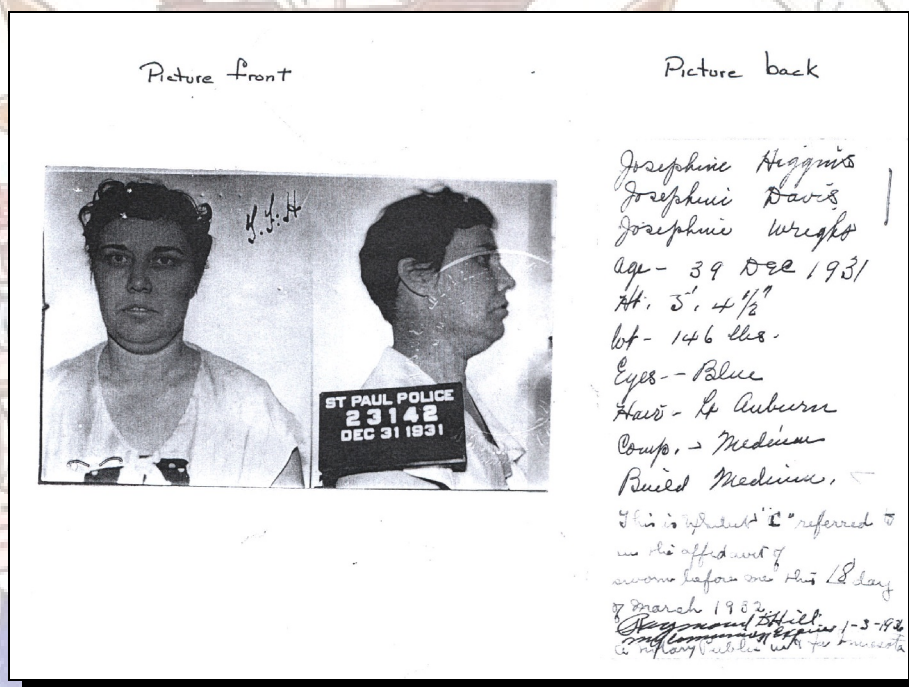 Picture front
Picture back
J.F.H
ST PAUL POLICE
23142
DEC 31 1931
Josephine Higgins
Josephine Davis
Josephine Wright
age - 39 Dec 1931
Ht. 5'. 4 1/2"
Wt - 146 lbs.
Eyes -- Blue
Hair - Lt Auburn
Comp. - Medium
Build Medium.
This is Exhibit "C" referred to
in the affidavit of
sworn before me this 18 day
of March 1932.
Raymond Hill
my Commission Expires 1-3-1936
a Notary Public in & for Minnesota